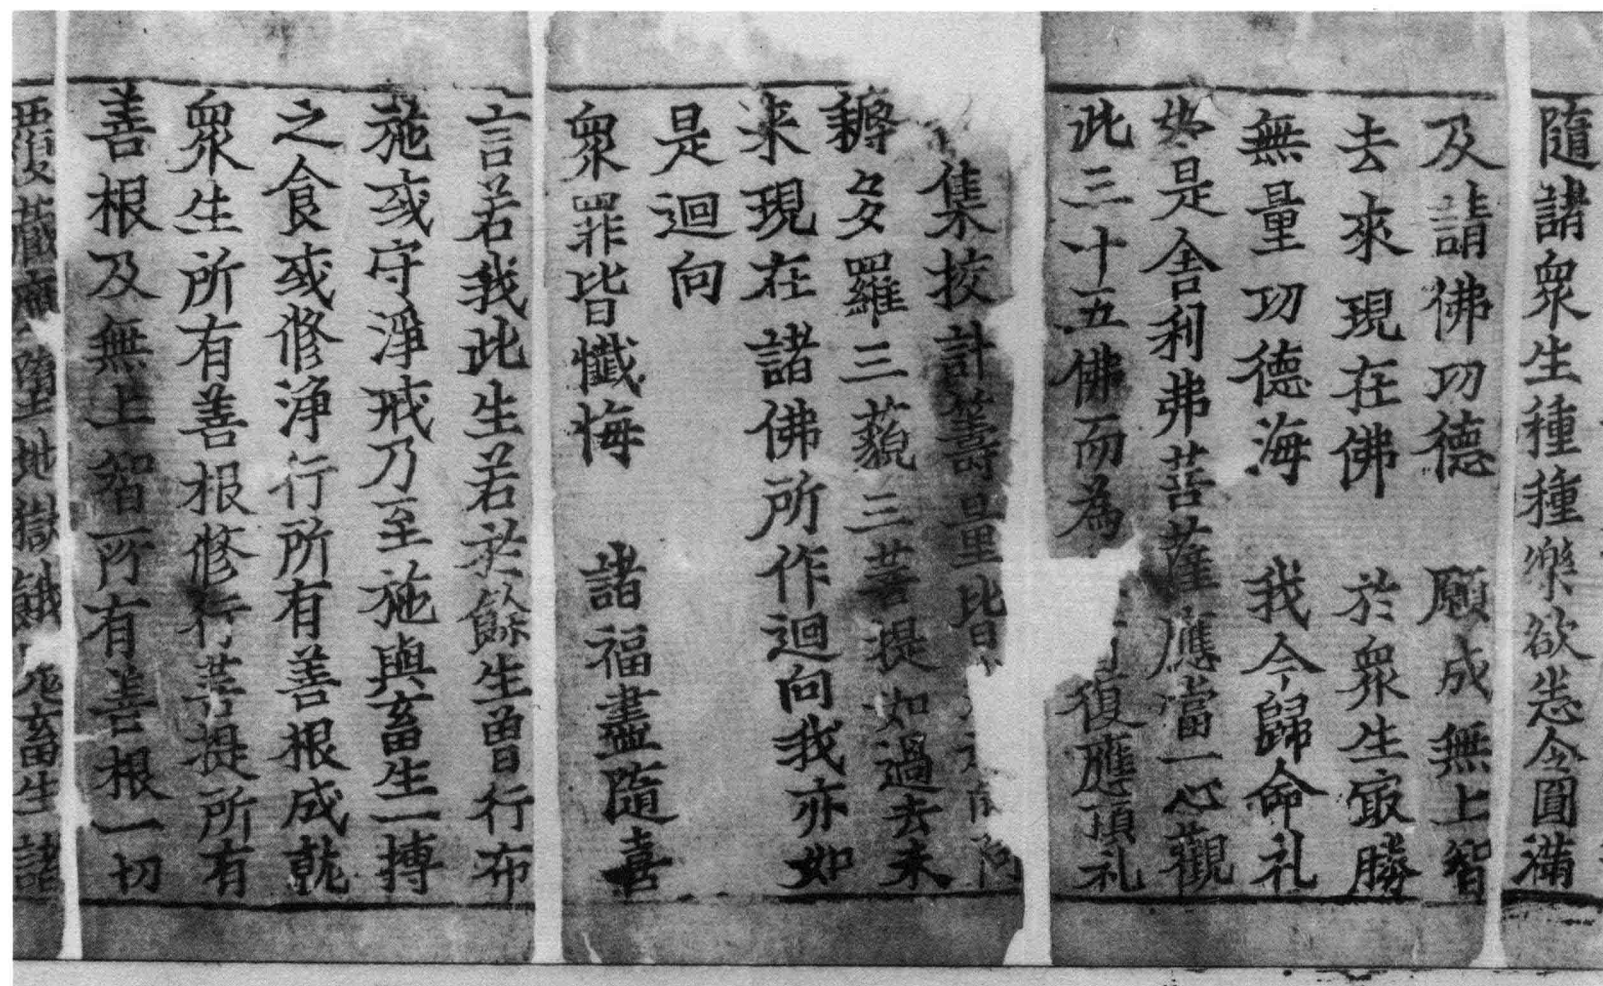 隨諸衆生種種樂欲恙令圓滿
及請佛功德　願成無上智
去來現在佛　於衆生㝡勝
無量功德海　我今歸命礼
如是舍利弗菩薩應當一心觀
此三十五佛而為　復應頂礼
集挍計籌量皆
耨多羅三藐三菩提如過去未
来現在諸佛所作迴向我亦如
是迴向
衆罪皆懺悔　諸福盡隨喜
言若我此生若於餘生曾行布
施或守淨戒乃至施與畜生一摶
之食或修淨行所有善根成𰁜
衆生所有善根修行菩提所有
善根及無上智所有善根一切
覆藏應墮地獄餓鬼畜生諸